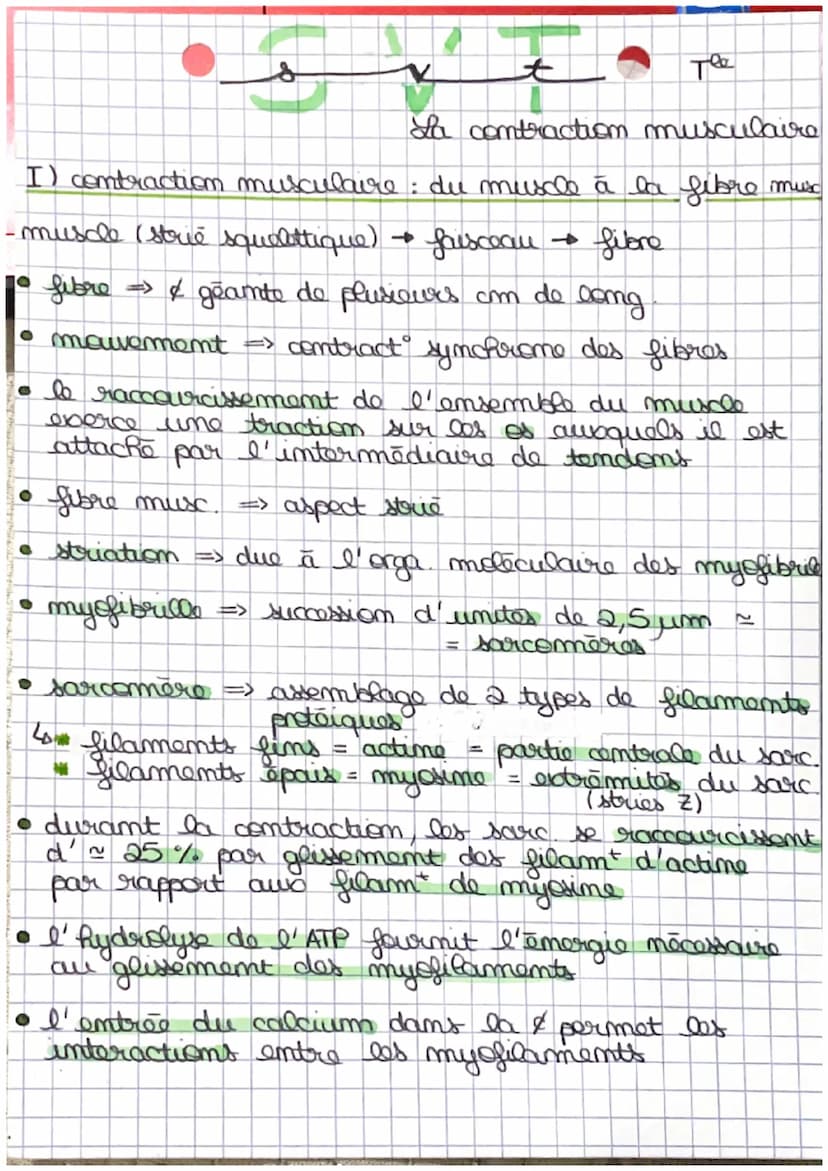 SVT
s v t Tle
La contraction musculaire
I) contraction musculaire : du muscle à la fibre musc
muscle (strié squelettique) → faisceau → fibre
• fibre => ¢ géante de plusieurs cm de long.
• mouvement => contract° synchrone des fibres
• le raccourcissement de l'ensemble du muscle
exerce une traction sur les os auxquels il est
attaché par l'intermédiaire de tendons
• fibre musc. => aspect strié
• striation => due à l'orga. moléculaire des myofibrill
• myofibrille => succession d'unités de 2,5 µm ≃
= sarcomères
• sarcomère => assemblage de 2 types de filaments
protéiques
↳ filaments fins = actine = partie centrale du sarc.
filaments épais = myosine = extrémités du sarc.
(stries Z)
• durant la contraction, les sarc. se raccourcissent
d' ≃ 25 % par glissement des filamt d'actine
par rapport aux filamt de myosine
• l'hydrolyse de l'ATP fournit l'énergie nécessaire
au glissement des myofilaments
• l'entrée du calcium dans la ¢ permet les
interactions entre les myofilaments